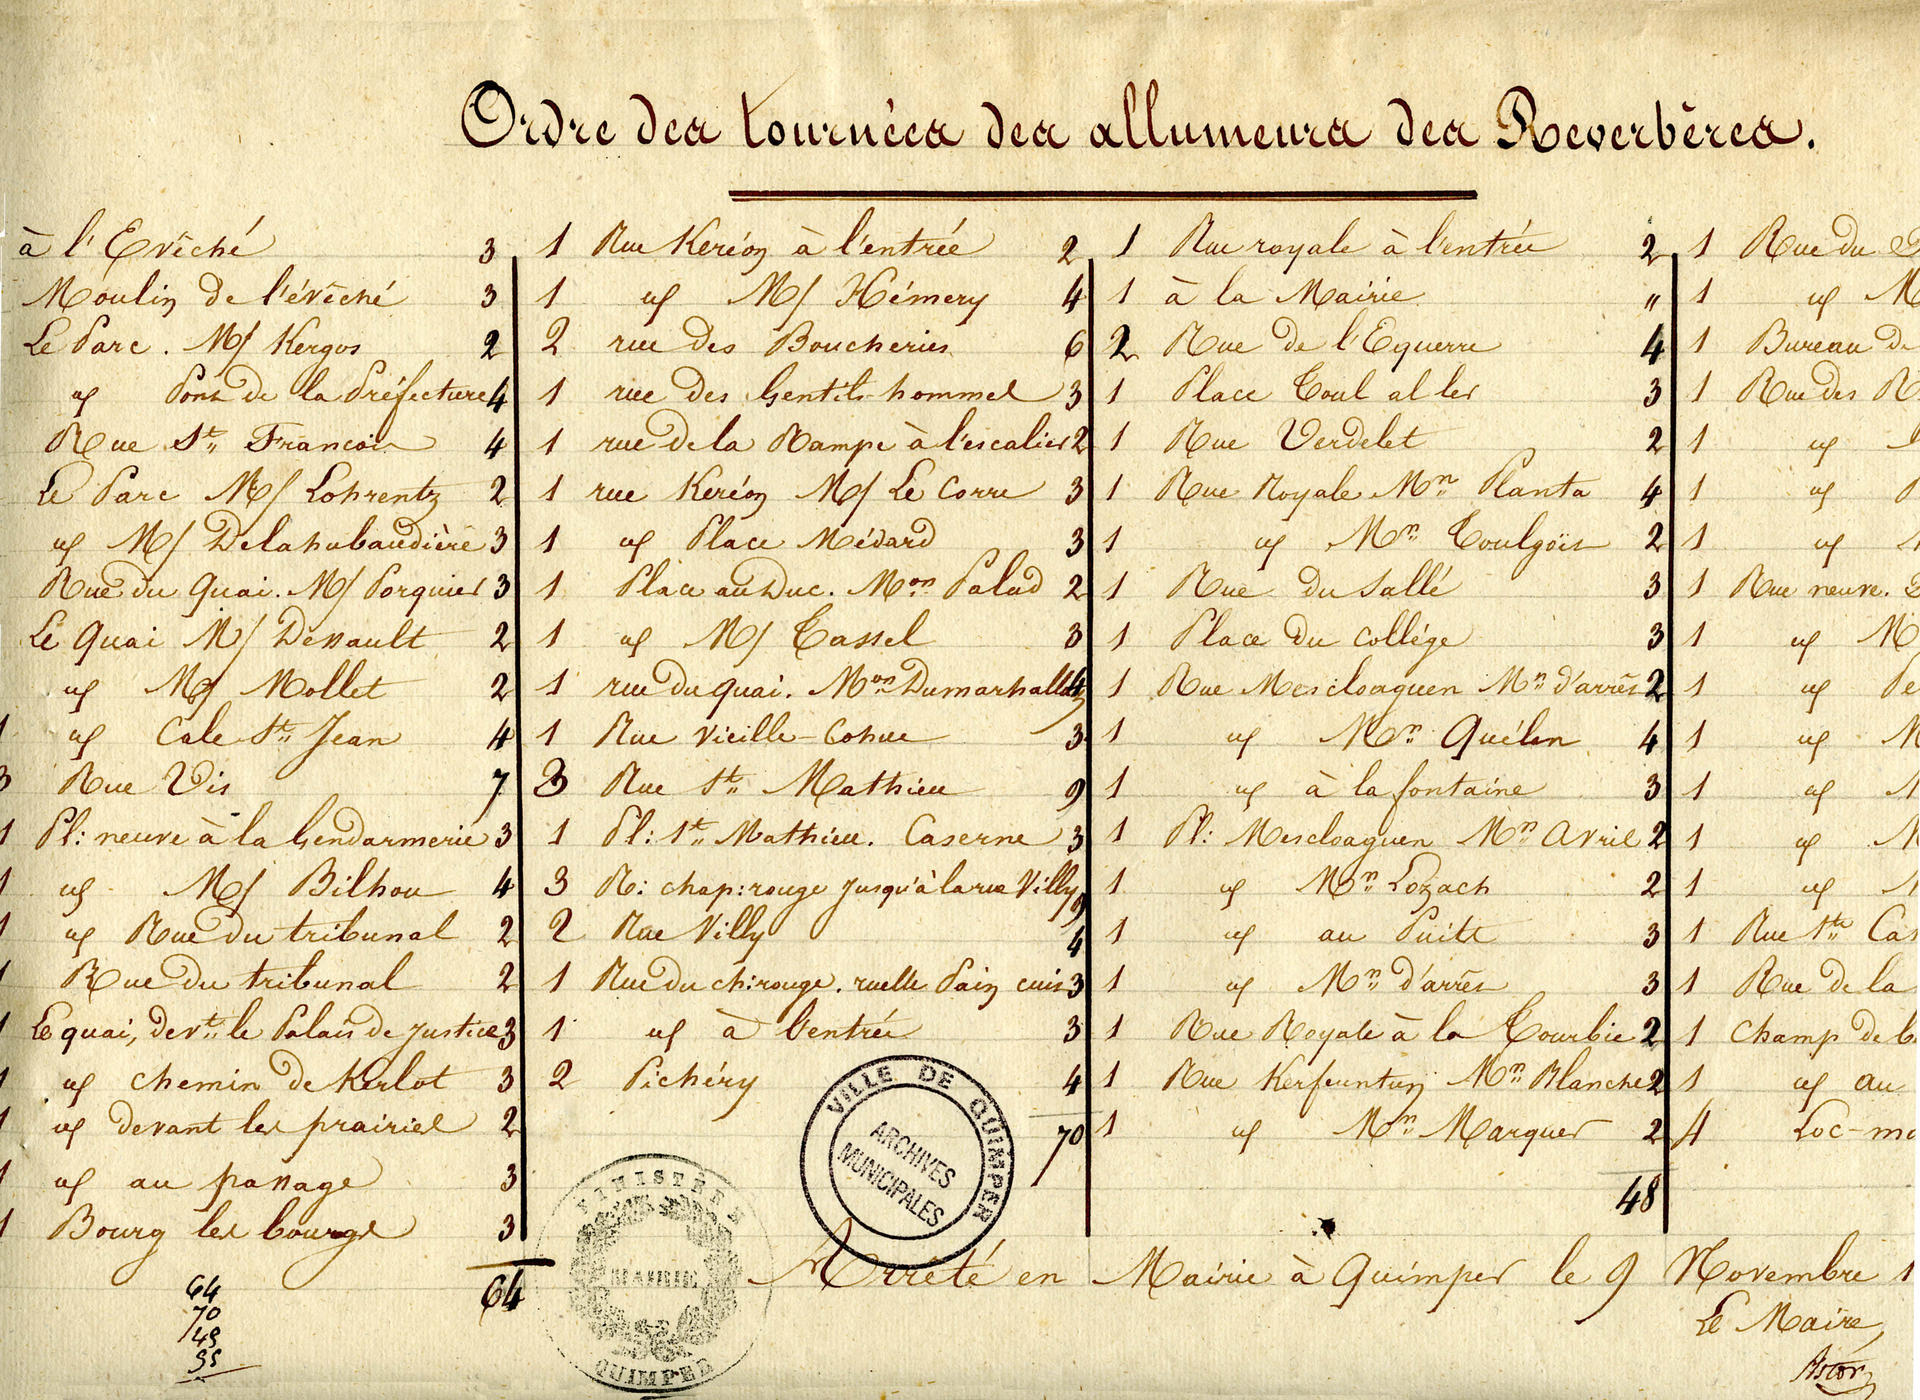 Ordre des tournées des allumeurs des Reverbères.
à l'Evêché 3
Moulin de l'évêché 3
Le Parc. M/ Kergos 2
id Pont de la Préfecture 4
Rue St. Francois 4
Le Parc M/ Lohrentz 2
id M/ Delahubaudière 3
Rue du Quai. M/ Porquier 3
Le Quai M/ Dessault 2
id M/ Mollet 2
1 id Cale St. Jean 4
3 Rue Vis 7
1 Pl: neuve à la Gendarmerie 3
1 id M/ Bilhou 4
1 id Rue du tribunal 2
1 Rue du tribunal 2
1 Le quai, devt. le Palais de Justice 3
1 id chemin de Kerlot 3
1 id devant les prairies 2
1 id au passage 3
1 Bourg les bourgs 3
64
64
70
48
55
1 Rue Keréon à l'entrée 2
1 id M/ Hémery 4
2 rue des Boucheries 6
1 rue des Gentils-hommes 3
1 rue de la Rampe à l'escalier 2
1 rue Keréon M/ Le Corre 3
1 id Place Médard 3
1 Place au Duc. Mon Palud 2
1 id M/ Tassel 3
1 rue du quai. Mon Dumarhallas 4
1 Rue Vieille-Cohue 3
3 Rue St. Mathieu 9
1 Pl: St. Mathieu. Caserne 3
3 R: chap: rouge jusqu'à la rue Villy 9
2 Rue Villy 4
1 Rue du ch: rouge. ruelle Pain cuit 3
1 id à l'entrée 3
2 Pichéry 4
70
1 Rue royale à l'entrée 2
1 à la Mairie "
2 Rue de l'Equerre 4
1 Place Toul al ler 3
1 Rue Verdelet 2
1 Rue Royale Mn Planta 4
1 id Mn Toulgöis 2
1 Rue du Sallé 3
1 Place du collége 3
1 Rue Mescloaguen Mn d'arrês 2
1 id Mn Quélen 4
1 id à la fontaine 3
1 Pl: Mescloaguen Mn Avril 2
1 id Mn Lozach 2
1 id au Puits 3
1 id Mn d'arrês 3
1 Rue Royale à la Tourbie 2
1 Rue Kerfeunteun Mn Blanche 2
1 id Mn Marquer 2
48
1 Rue du
1 id M
1 Bureau de
1 Rue des R
1 id
1 id
1 id
1 Rue neuve.
1 id M
1 id Pe
1 id M
1 id
1 id M
1 id
1 Rue Ste. Cas
1 Rue de la
1 Champ de b
1 id au
4 Loc-ma
VILLE DE QUIMPER
ARCHIVES
MUNICIPALES
FINISTÈRE
MAIRIE
QUIMPER
Arrêté en Mairie à Quimper le 9 Novembre 1
Le Maire,